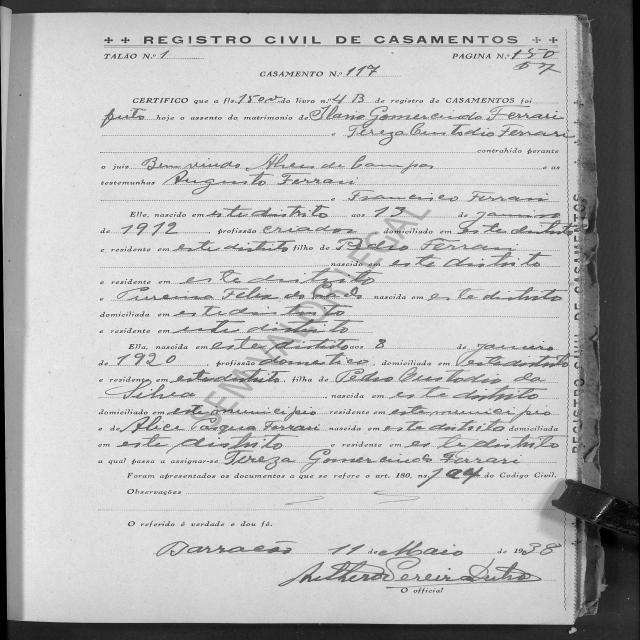 REGISTRO CIVIL DE CASAMENTOS
TALÃO N.º 1 PAGINA N.º 150
57
CASAMENTO N.º 117
CERTIFICO que a fls. 150 v do livro n.º 4 B de registro de CASAMENTOS foi
feito hoje o assento do matrimonio de Ilano Gomercindo Ferrari
e Tereza Custodio Ferrari
contrahido perante
o juis Bemvindo Alves de Campos e as
testemunhas Augusto Ferrari
e Francisco Ferrari
Elle, nascido em este distrito aos 13 de janeiro
de 1912, profissão criador domiciliado em este distrito
e residente em este distrito filho de Pedro Ferrari
nascido em este distrito
e residente em este distrito
e nascida em este distrito
domiciliada em este distrito
e residente em este distrito
Ella, nascida em este distrito aos 8 de janeiro
de 1920, profissão domestica, domiciliada em este distrito
e residente em este distrito, filha de Pedro Custodio da
Silva nascido em este distrito
domiciliado em este municipio residente em este municipio
e de Alice Ferrari nascida em este distrito domiciliada
em este distrito e residente em este distrito
a qual passa a assignar-se Tereza Gomercindo Ferrari
Foram apresentados os documentos a que se refere o art. 180, ns. 1 a 4 do Codigo Civil.
Observações
O referido é verdade e dou fé.
Barracão 11 de Maio de 1938
O official
SEM VALOR LEGAL
REGISTRO CIVIL DE CASAMENTOS